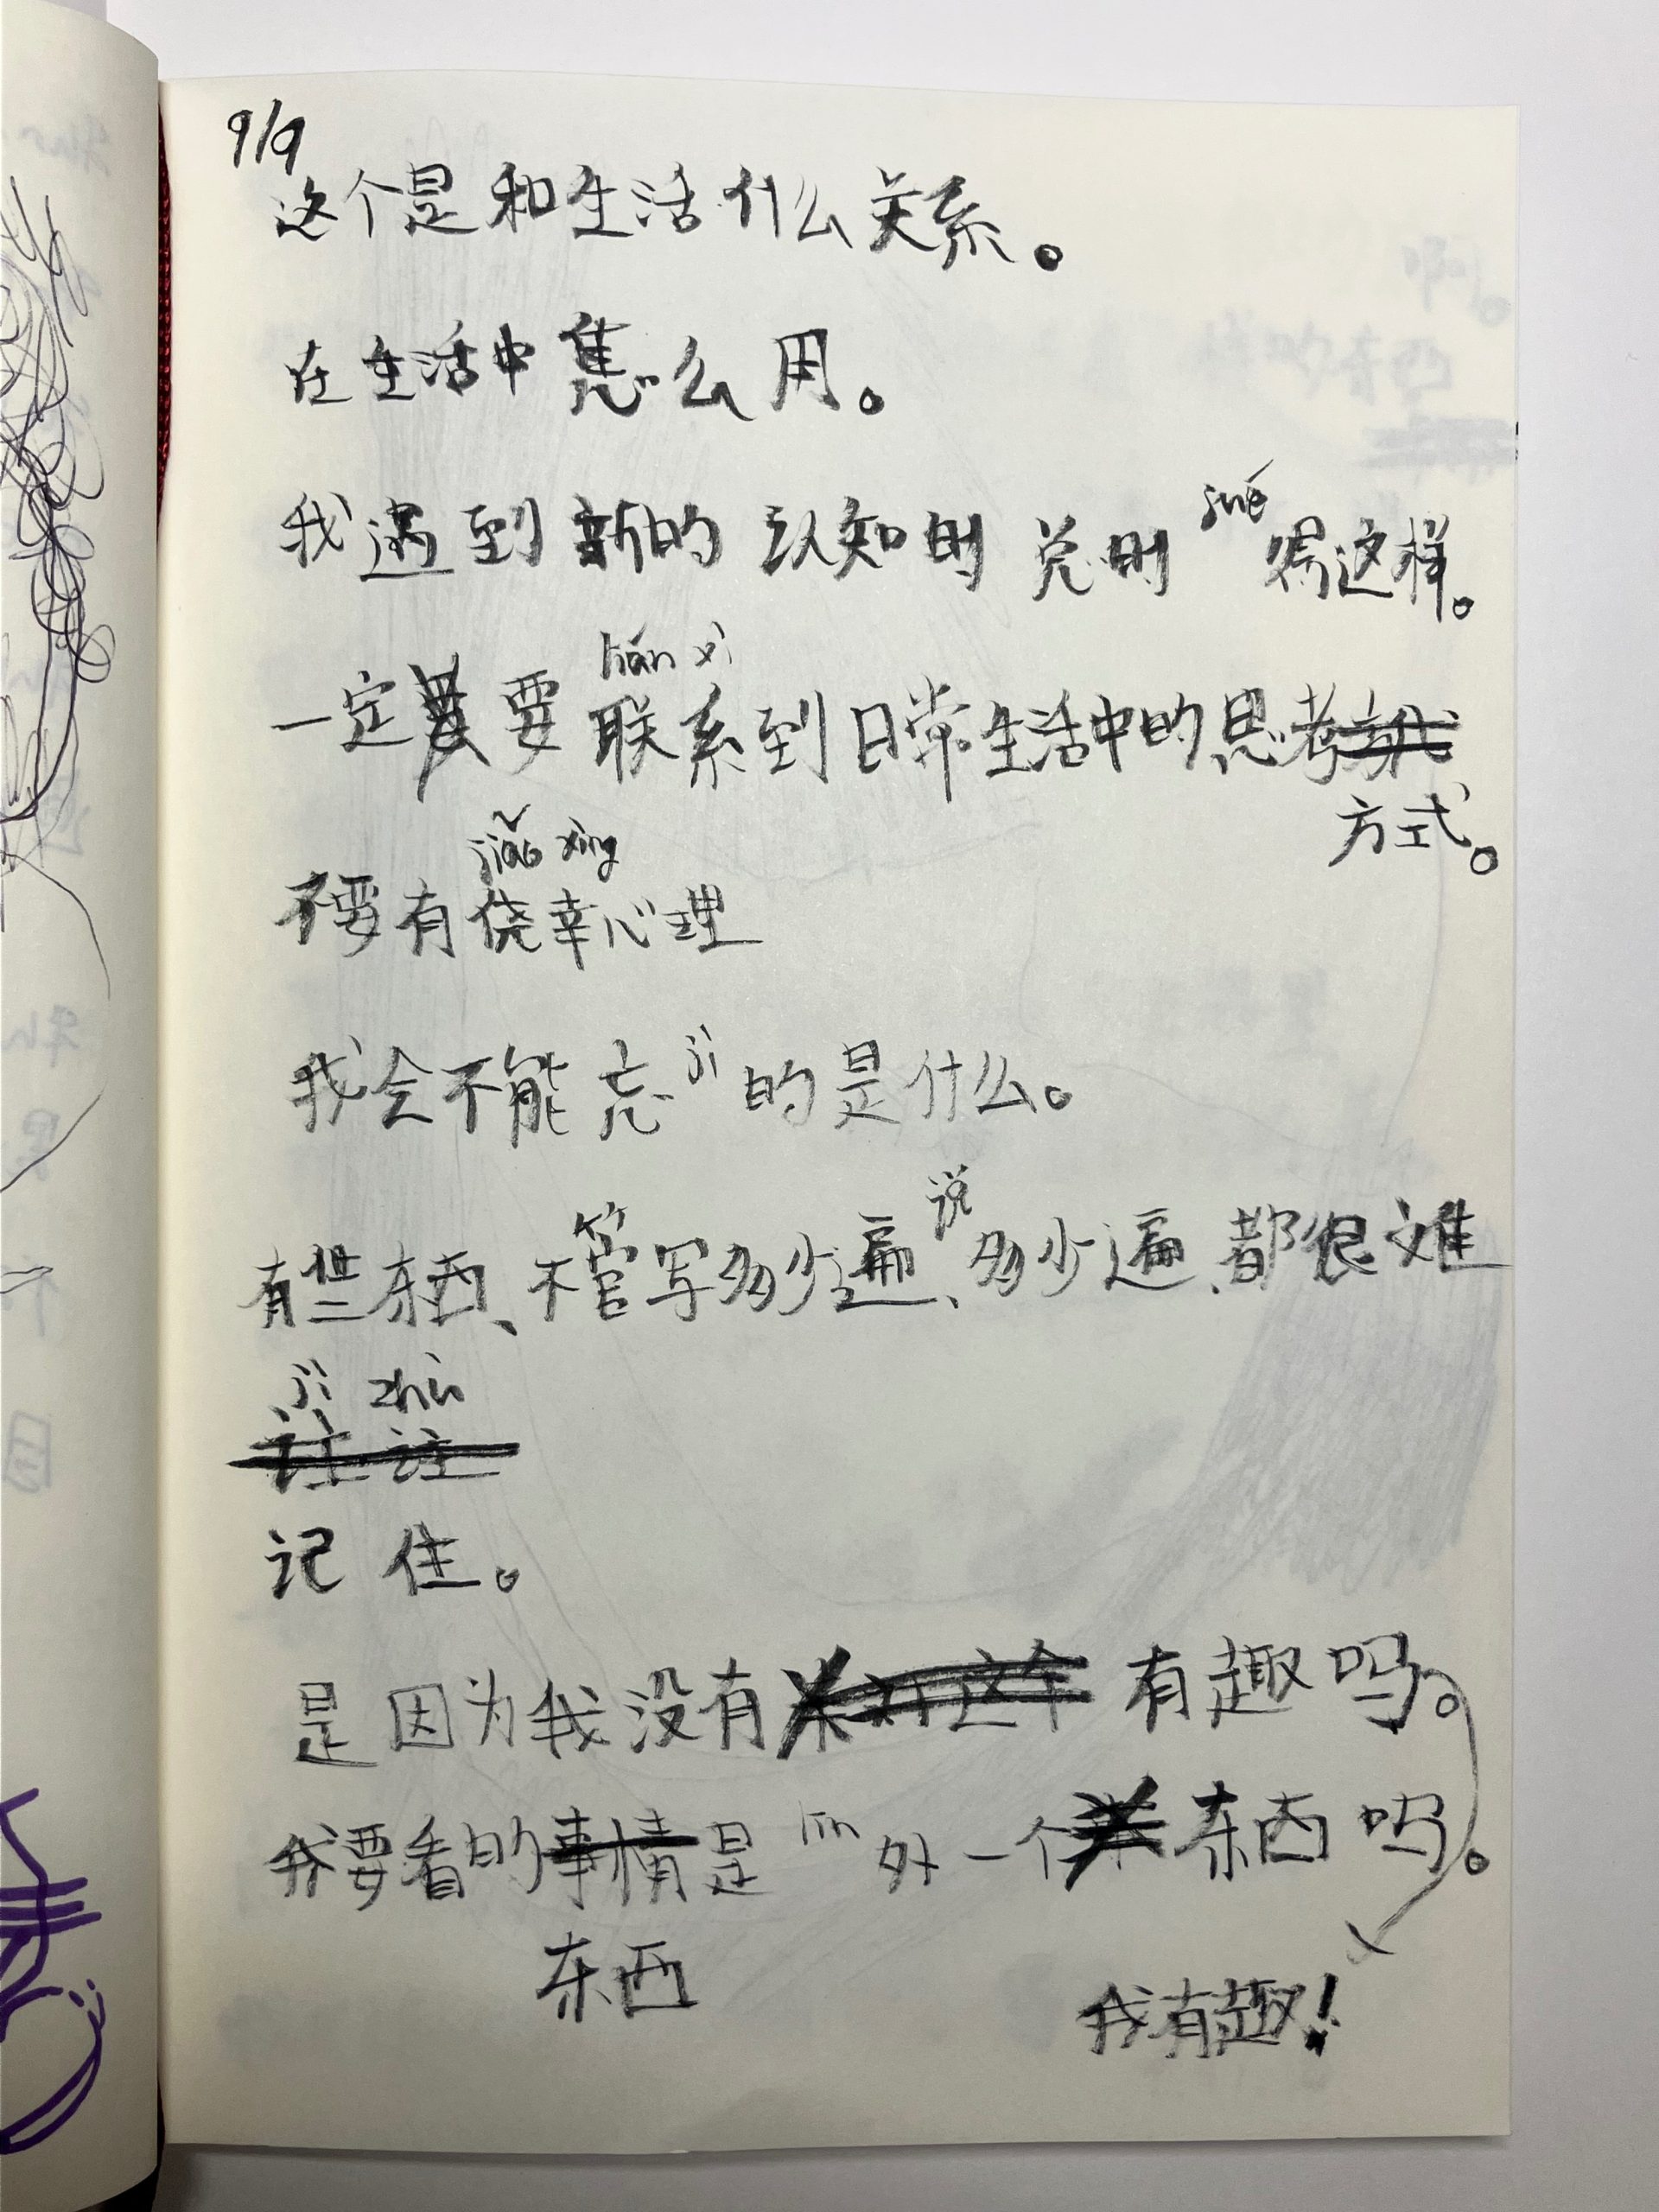 9/9
这个是和生活什么关系。
在生活中怎么用。
jué
我遇到新的认知的 的 得这样。
lián xì
一定要联系到日常生活中的思考
方式。
jiǎo xìng
不要有侥幸心理
我会不能忘jì的是什么。
说
有些东西、不管写多少遍、多少遍、都很难
jì zhù
记住。
是因为我没有 有趣吗。
我要看的事情是lìn外一个东西吗。
东西
我有趣!